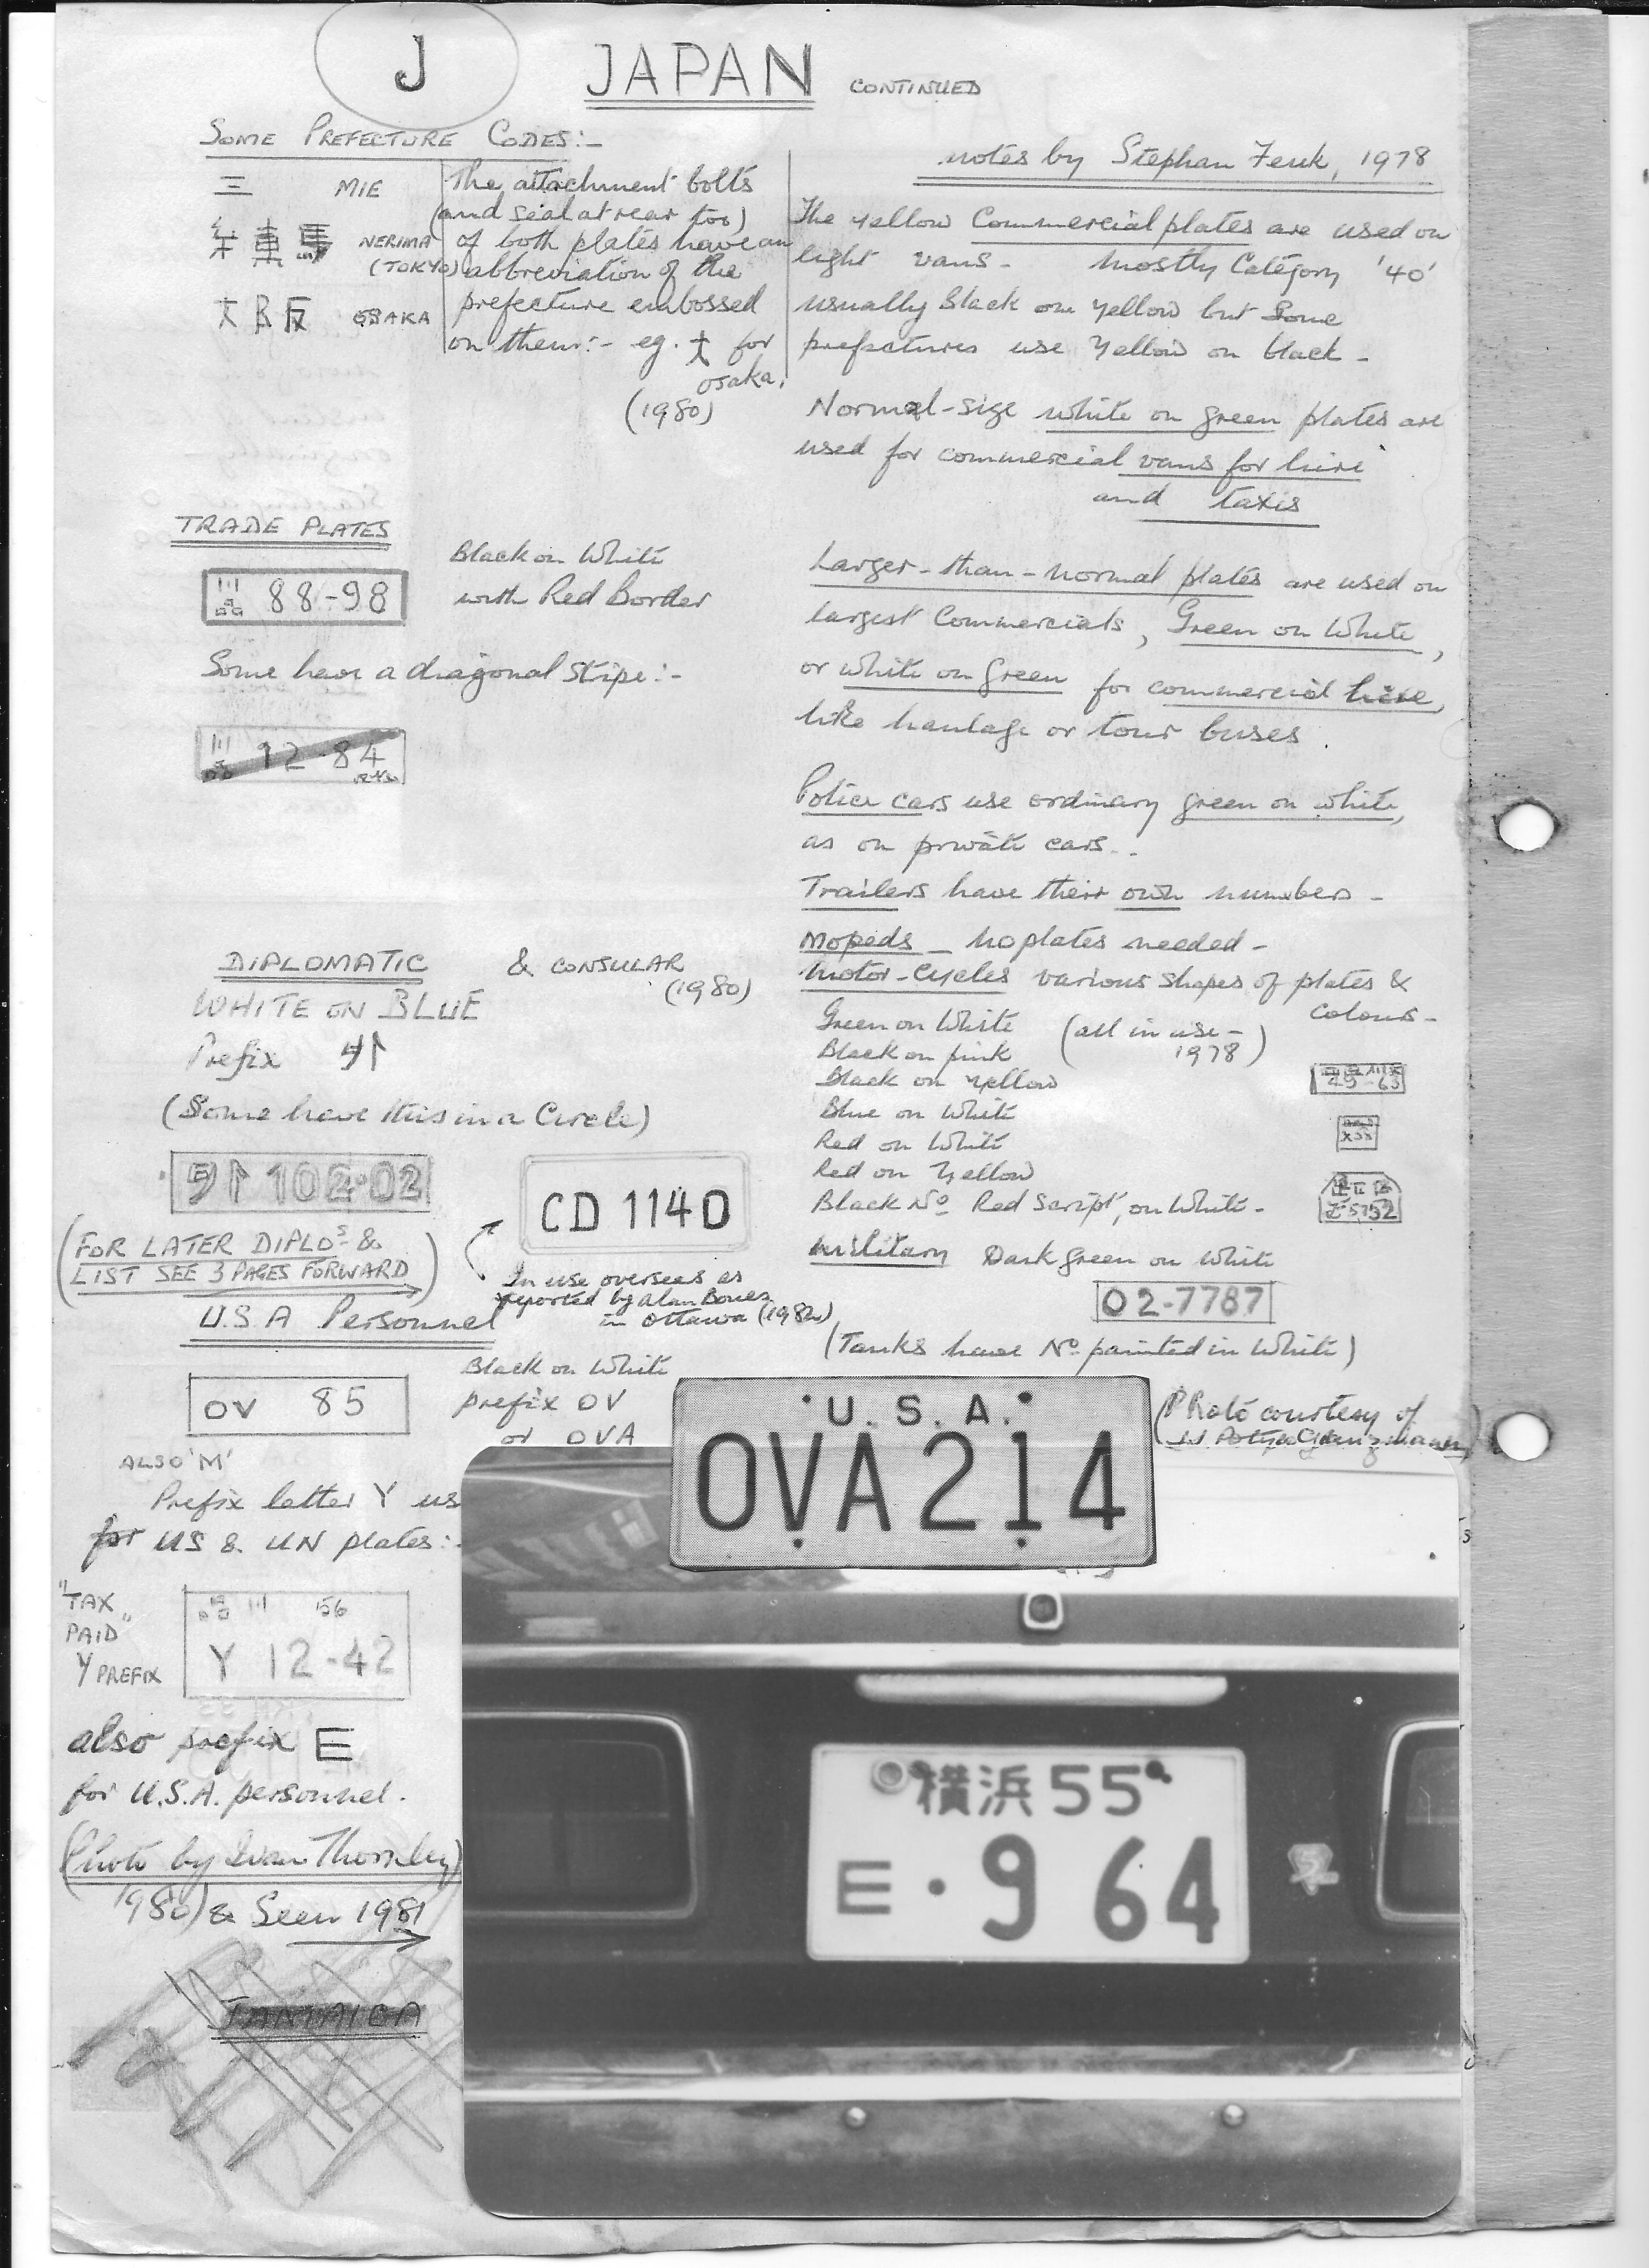 J
JAPAN CONTINUED
SOME PREFECTURE CODES:-
三 MIE
練馬 NERIMA
(TOKYO)
大阪 OSAKA
The attachment bolts
(and seal at rear too)
of both plates have an
abbreviation of the
prefecture embossed
on them:- eg. 大 for
Osaka.
(1980)
notes by Stephan Fenk, 1978
The yellow Commercial plates are used on
light vans - mostly Category '40'
usually black on yellow but some
prefectures use yellow on black -
Normal-size white on green plates are
used for commercial vans for hire
and taxis
Larger-than-normal plates are used on
largest Commercials, Green on White,
or white on green for commercial hire,
like haulage or tour buses.
Police cars use ordinary green on white,
as on private cars.
Trailers have their own numbers -
Mopeds - no plates needed -
Motor-cycles various shapes of plates &
colours -
Green on White (all in use -
Black on pink 1978)
Black on yellow
Blue on White
Red on White
Red on Yellow
Black No Red Script, on White -
49-63
5752
Military Dark green on white
02-7787
(Tanks have No painted in White)
TRADE PLATES
Black on White
with Red Border
88-98
Some have a diagonal stripe:-
12-84
DIPLOMATIC & CONSULAR
(1980)
WHITE ON BLUE
Prefix 外
(Some have this in a Circle)
外 102-02
CD 1140
(FOR LATER DIPLOs &
LIST SEE 3 PAGES FORWARD)
In use overseas as
reported by Alan Bones
in Ottawa (1982)
U.S.A Personnel
OV 85
Black on White
prefix OV
or OVA
ALSO 'M'
Prefix letter Y us
for US & UN plates:-
"TAX
PAID"
Y PREFIX
56
Y 12-42
also prefix E
for U.S.A. personnel.
(Photo by Ivan Thornley
1980) & Seen 1981
JAMAICA
(Photo courtesy of
U.S.A.
OVA214
横浜55
E・9 64